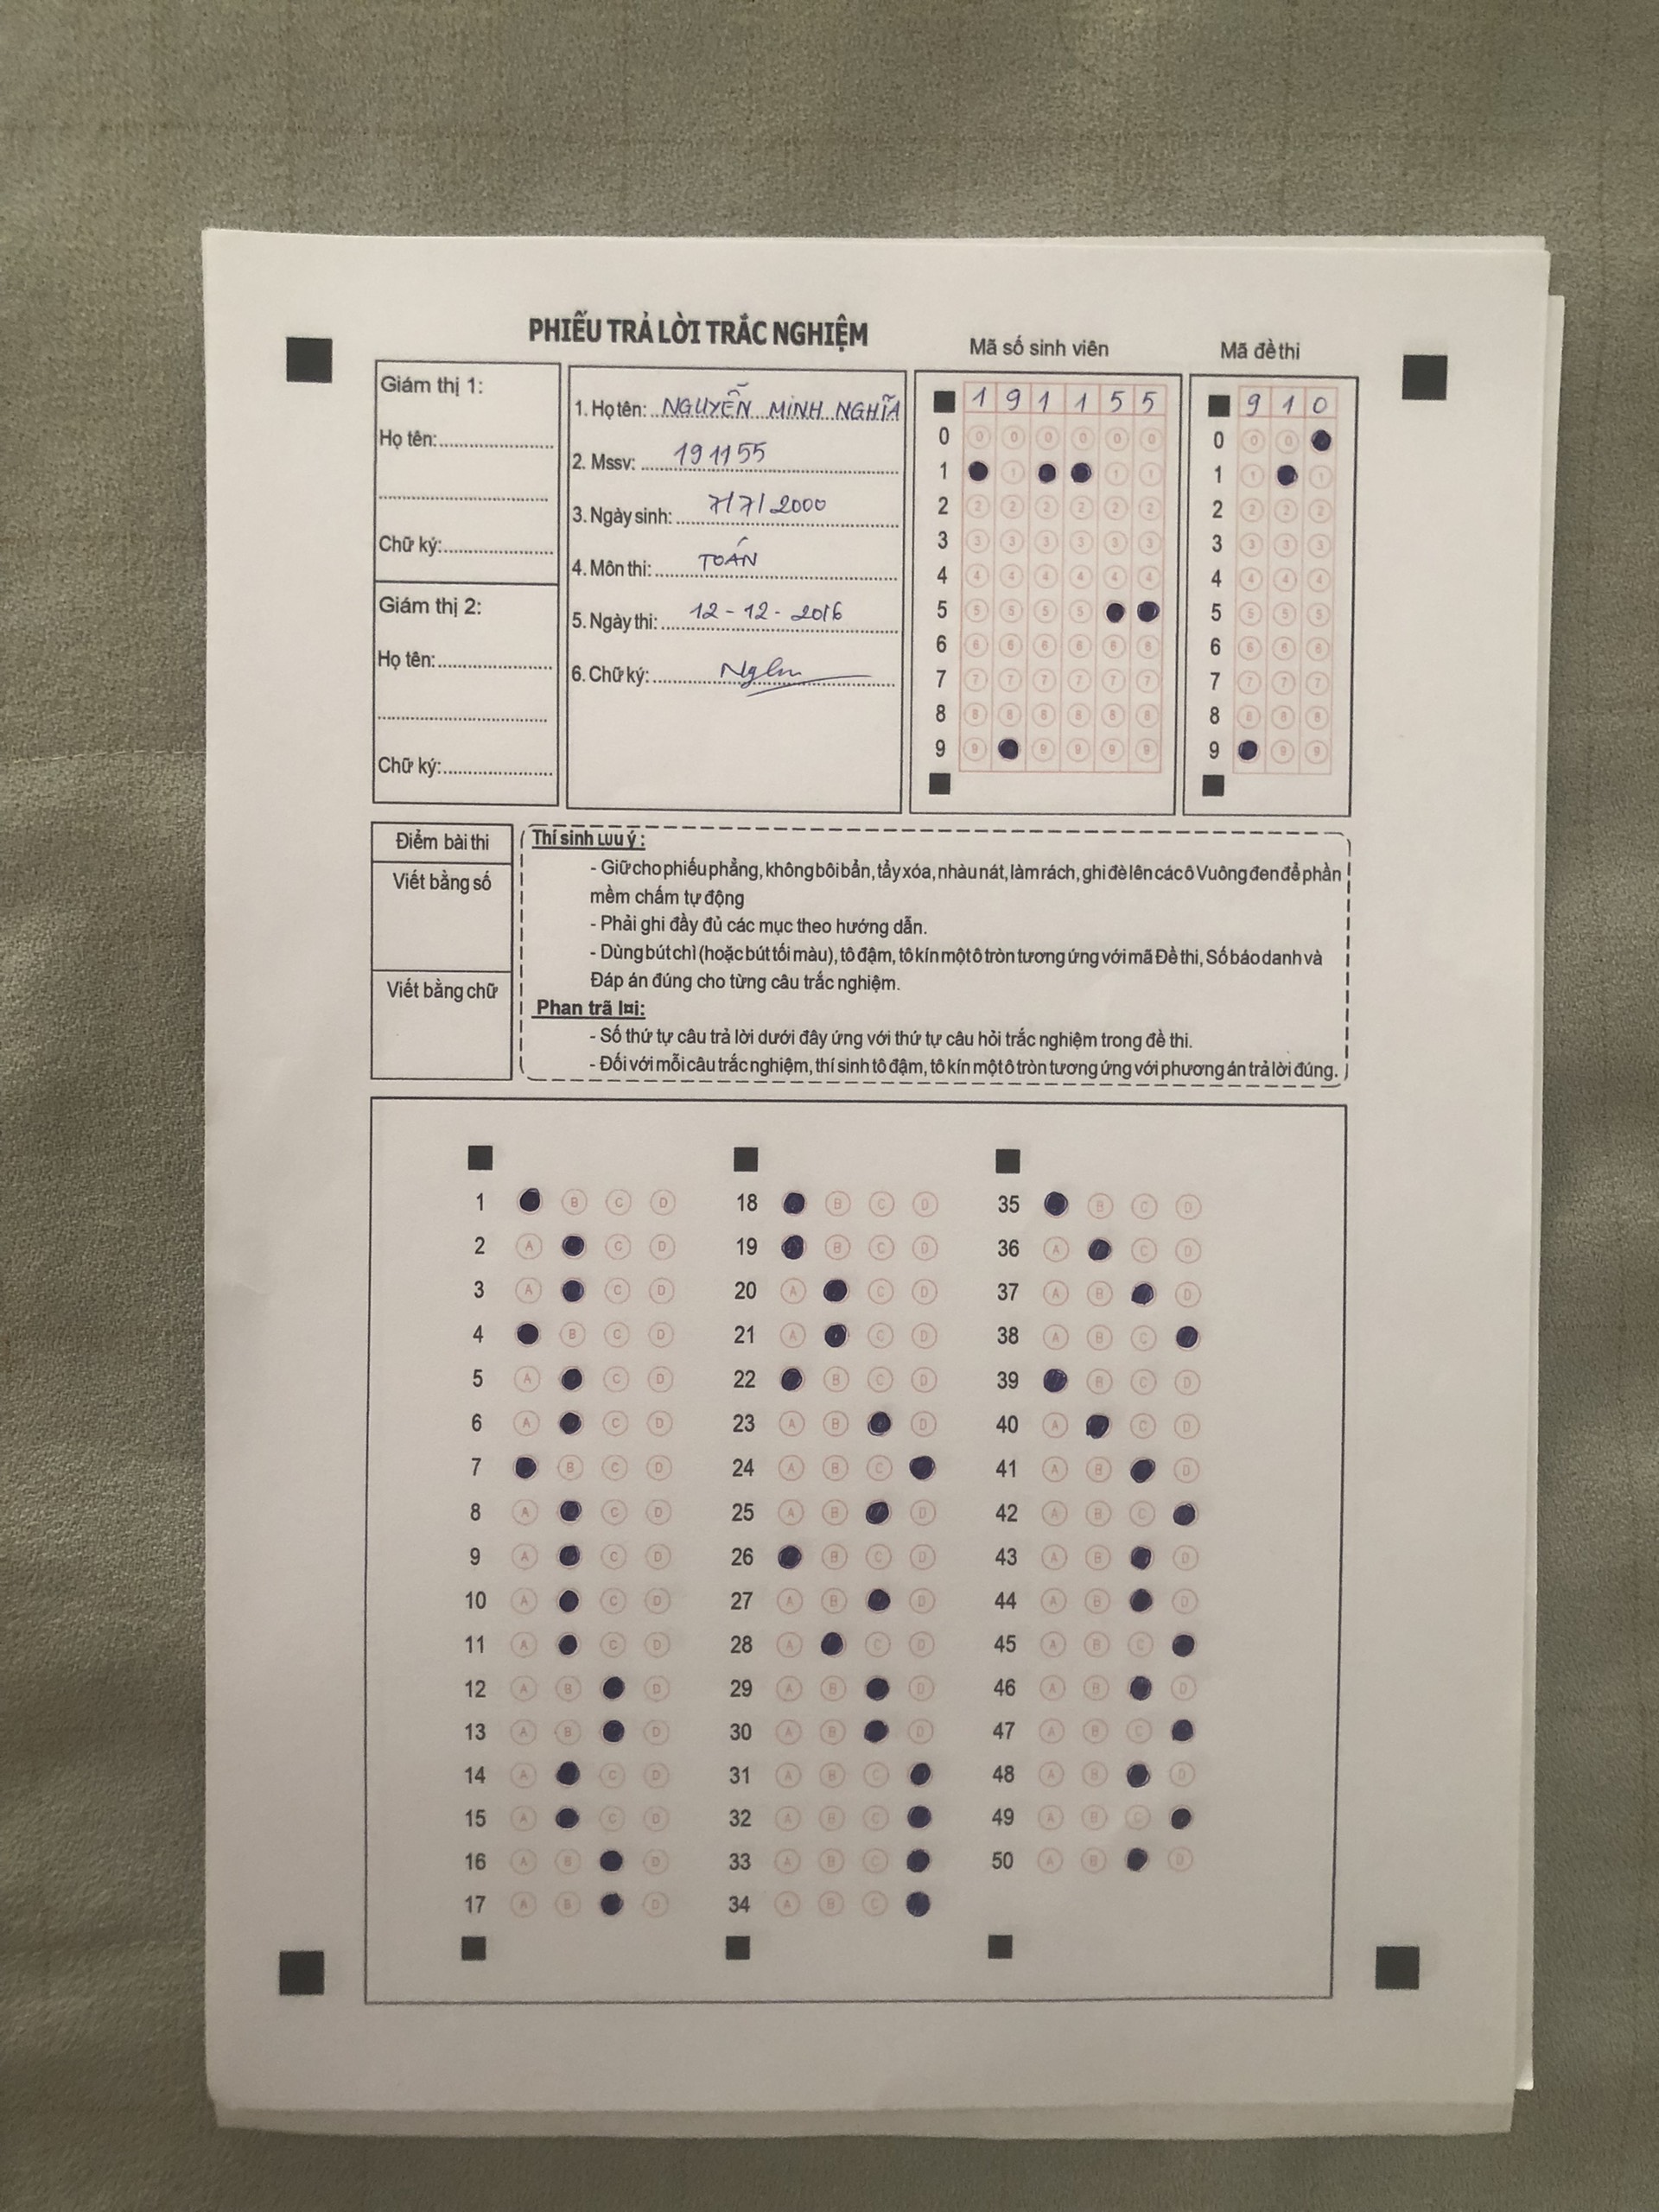 PHIẾU TRẢ LỜI TRẮC NGHIỆM
Giám thị 1:
Họ tên:
Chữ ký:
Giám thị 2:
Họ tên:
Chữ ký:
1. Họ tên: NGUYỄN MINH NGHĨA
2. Mssv: 191155
3. Ngày sinh: 7/7/2000
4. Môn thi: TOÁN
5. Ngày thi: 12-12-2016
6. Chữ ký:
Mã số sinh viên
1 9 1 1 5 5
0 0 0 0 0 0 0
1 1 1 1
2 2 2 2 2 2 2
3 3 3 3 3 3 3
4 4 4 4 4 4 4
5 5 5 5 5
6 6 6 6 6 6 6
7 7 7 7 7 7 7
8 8 8 8 8 8 8
9 9 9 9 9 9
Mã đề thi
9 1 0
0 0 0
1 1 1
2 2 2 2
3 3 3 3
4 4 4 4
5 5 5 5
6 6 6 6
7 7 7 7
8 8 8 8
9 9 9
Điểm bài thi
Viết bằng số
Viết bằng chữ
Thí sinh lưu ý:
- Giữ cho phiếu phẳng, không bôi bẩn, tẩy xóa, nhàu nát, làm rách, ghi đè lên các ô Vuông đen để phần
mềm chấm tự động
- Phải ghi đầy đủ các mục theo hướng dẫn.
- Dùng bút chì (hoặc bút tối màu), tô đậm, tô kín một ô tròn tương ứng với mã Đề thi, Số báo danh và
Đáp án đúng cho từng câu trắc nghiệm.
Phan trã l¤i:
- Số thứ tự câu trả lời dưới đây ứng với thứ tự câu hỏi trắc nghiệm trong đề thi.
- Đối với mỗi câu trắc nghiệm, thí sinh tô đậm, tô kín một ô tròn tương ứng với phương án trả lời đúng.
1 B C D
2 A C D
3 A C D
4 B C D
5 A C D
6 A C D
7 B C D
8 A C D
9 A C D
10 A C D
11 A C D
12 A B D
13 A B D
14 A C D
15 A C D
16 A B D
17 A B D
18 B C D
19 B C D
20 A C D
21 A C D
22 B C D
23 A B D
24 A B C
25 A B D
26 B C D
27 A B D
28 A C D
29 A B D
30 A B D
31 A B C
32 A B C
33 A B C
34 A B C
35 B C D
36 A C D
37 A B D
38 A B C
39 B C D
40 A C D
41 A B D
42 A B C
43 A B D
44 A B D
45 A B C
46 A B D
47 A B C
48 A B D
49 A B C
50 A B D